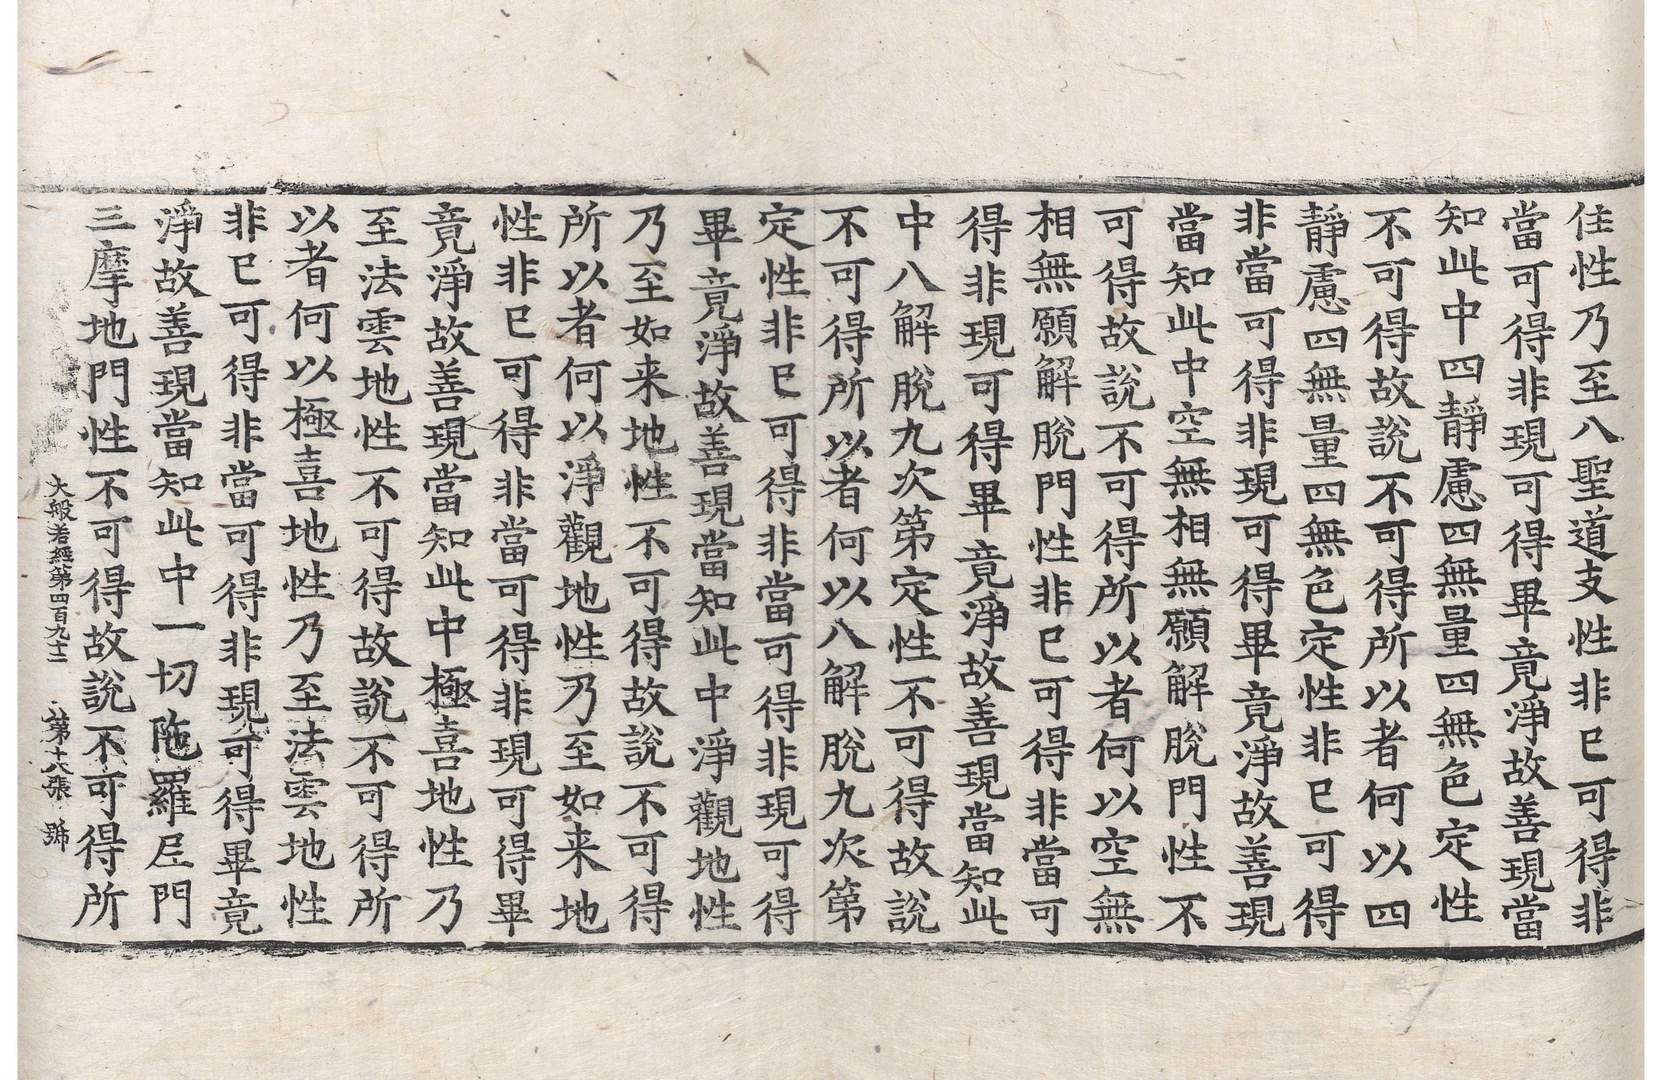 住性乃至八聖道支性非已可得非
當可得非現可得畢竟淨故善現當
知此中四靜慮四無量四無色定性
不可得故說不可得所以者何以四
靜慮四無量四無色定性非已可得
非當可得非現可得畢竟淨故善現
當知此中空無相無願解脫門性不
可得故說不可得所以者何以空無
相無願解脫門性非已可得非當可
得非現可得畢竟淨故善現當知此
中八解脫九次第定性不可得故說
不可得所以者何以八解脫九次第
定性非已可得非當可得非現可得
畢竟淨故善現當知此中淨觀地性
乃至如来地性不可得故說不可得
所以者何以淨觀地性乃至如来地
性非已可得非當可得非現可得畢
竟淨故善現當知此中極喜地性乃
至法雲地性不可得故說不可得所
以者何以極喜地性乃至法雲地性
非已可得非當可得非現可得畢竟
淨故善現當知此中一切陁羅尼門
三摩地門性不可得故說不可得所
大般若經第四百九十二 第十六張 號